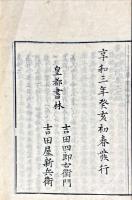 享和三年癸亥初春發行
皇都書林
吉田四郎右衛門
吉田屋新兵衛